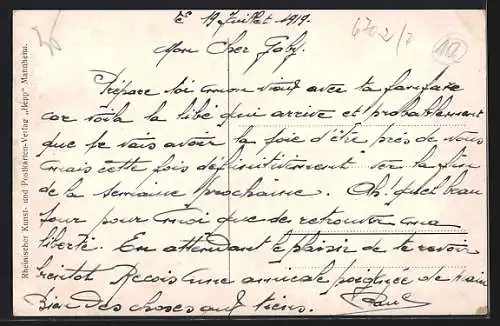 le 19 Juillet 1919.
Mon Cher Gaby.
Prépare toi mon vieux avec ta fanfare
car voila la libé qui arrive et probablement
que je vais avoir la joie d'être près de vous
mais cette fois définitivement vers la fin
de la semaine prochaine. Oh! quel beau
jour pour moi que de retrouver ma
liberté. En attendant le plaisir de te revoir
bientot Recois une amicale poignée de main
Bien des choses aux tiens. Paul
6702/7
10
Rheinischer Kunst- und Postkarten-Verlag „Hepp" Mannheim.